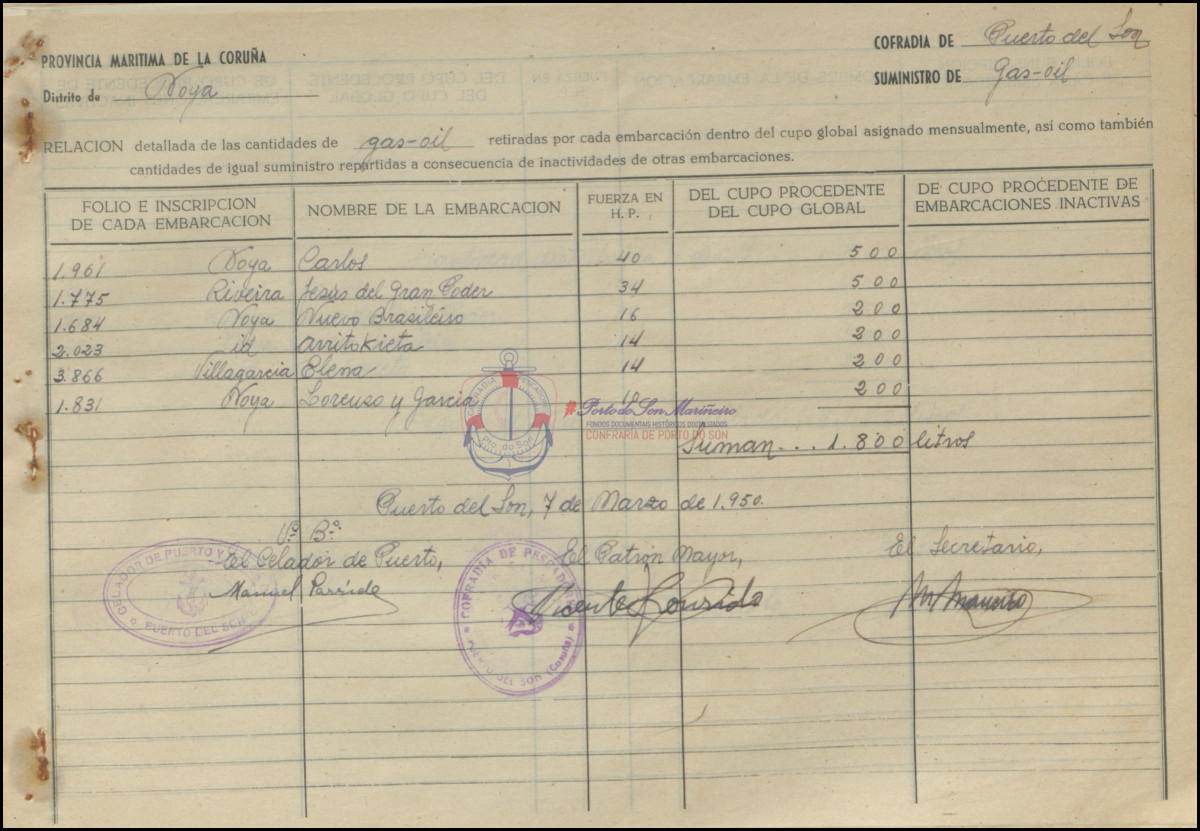 PROVINCIA MARITIMA DE LA CORUÑA
Distrito de Noya
COFRADIA DE Puerto del Son
SUMINISTRO DE gas-oil
RELACION detallada de las cantidades de gas-oil retiradas por cada embarcación dentro del cupo global asignado mensualmente, así como también
cantidades de igual suministro repartidas a consecuencia de inactividades de otras embarcaciones.
FOLIO E INSCRIPCION DE CADA EMBARCACION NOMBRE DE LA EMBARCACION FUERZA EN H. P. DEL CUPO PROCEDENTE DEL CUPO GLOBAL DE CUPO PROCEDENTE DE EMBARCACIONES INACTIVAS
1.961 Noya Carlos 40 500
1.775 Riveira Jesús del Gran Poder 34 500
1.684 Noya Nuevo Brasileiro 16 200
2.023 id Arritokieta 14 200
3.866 Villagarcia Elena 14 200
1.831 Noya Lorenso y Garcia 200
Suman... 1.800 litros
CONFRARÍA PESCADORES
Pto. do Son
#Porto do Son Mariñeiro
FONDOS DOCUMENTAIS HISTÓRICOS DIXITALIZADOS
CONFRARÍA DE PORTO DO SON
Puerto del Son, 7 de Marzo de 1.950.
Vº. Bº.
El Celador de Puerto, El Patrón Mayor, El Secretario,
Manuel Parrido Vicente Lourido
CELADOR DE PUERTO Y
PUERTO DEL SON
COFRADIA DE PESCADORES
PUERTO DEL SON (Coruña)